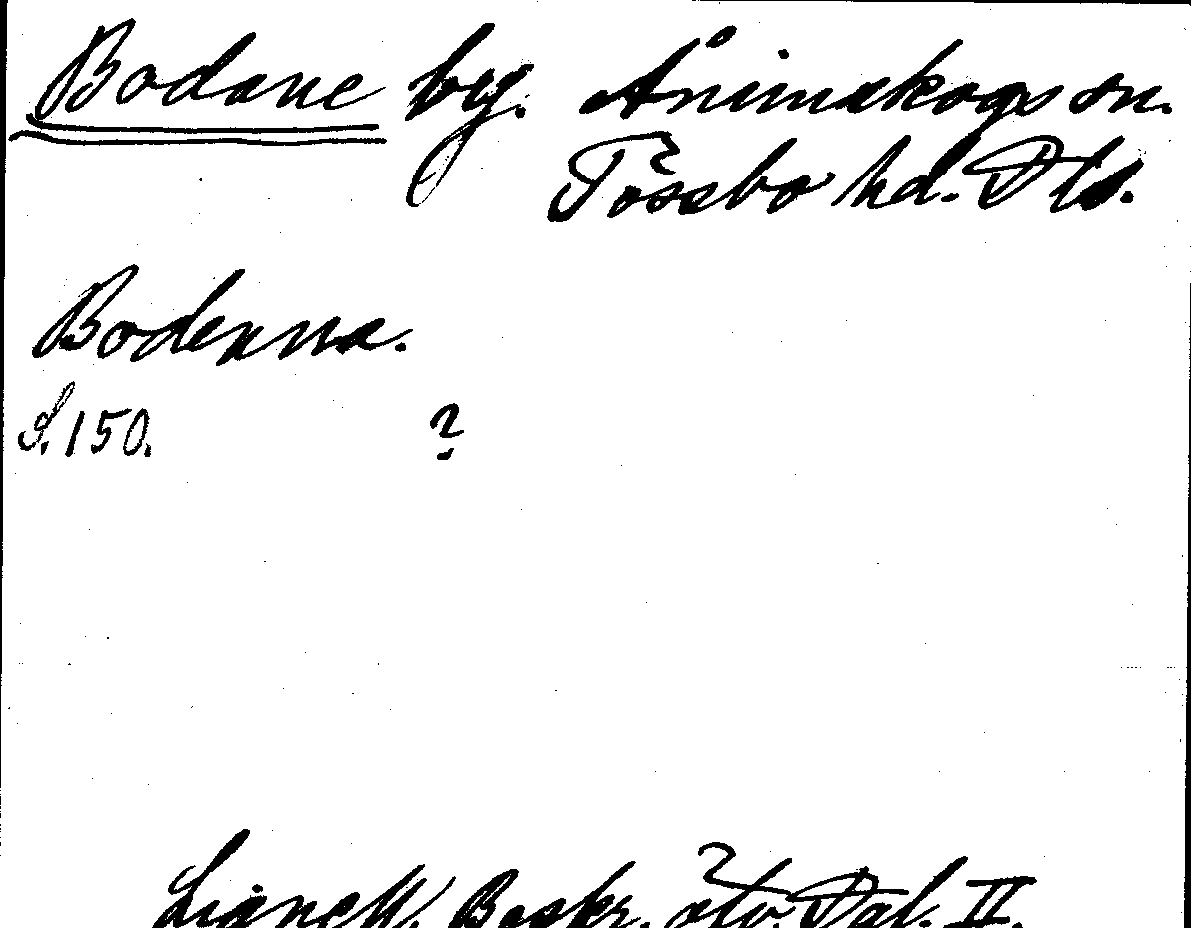 Bodane by. Ånimskogs sn.
Tössbo hd. Dls.
Bodenna.
S. 150. ?
Lignell, Beskr. öfv. Dal. II.